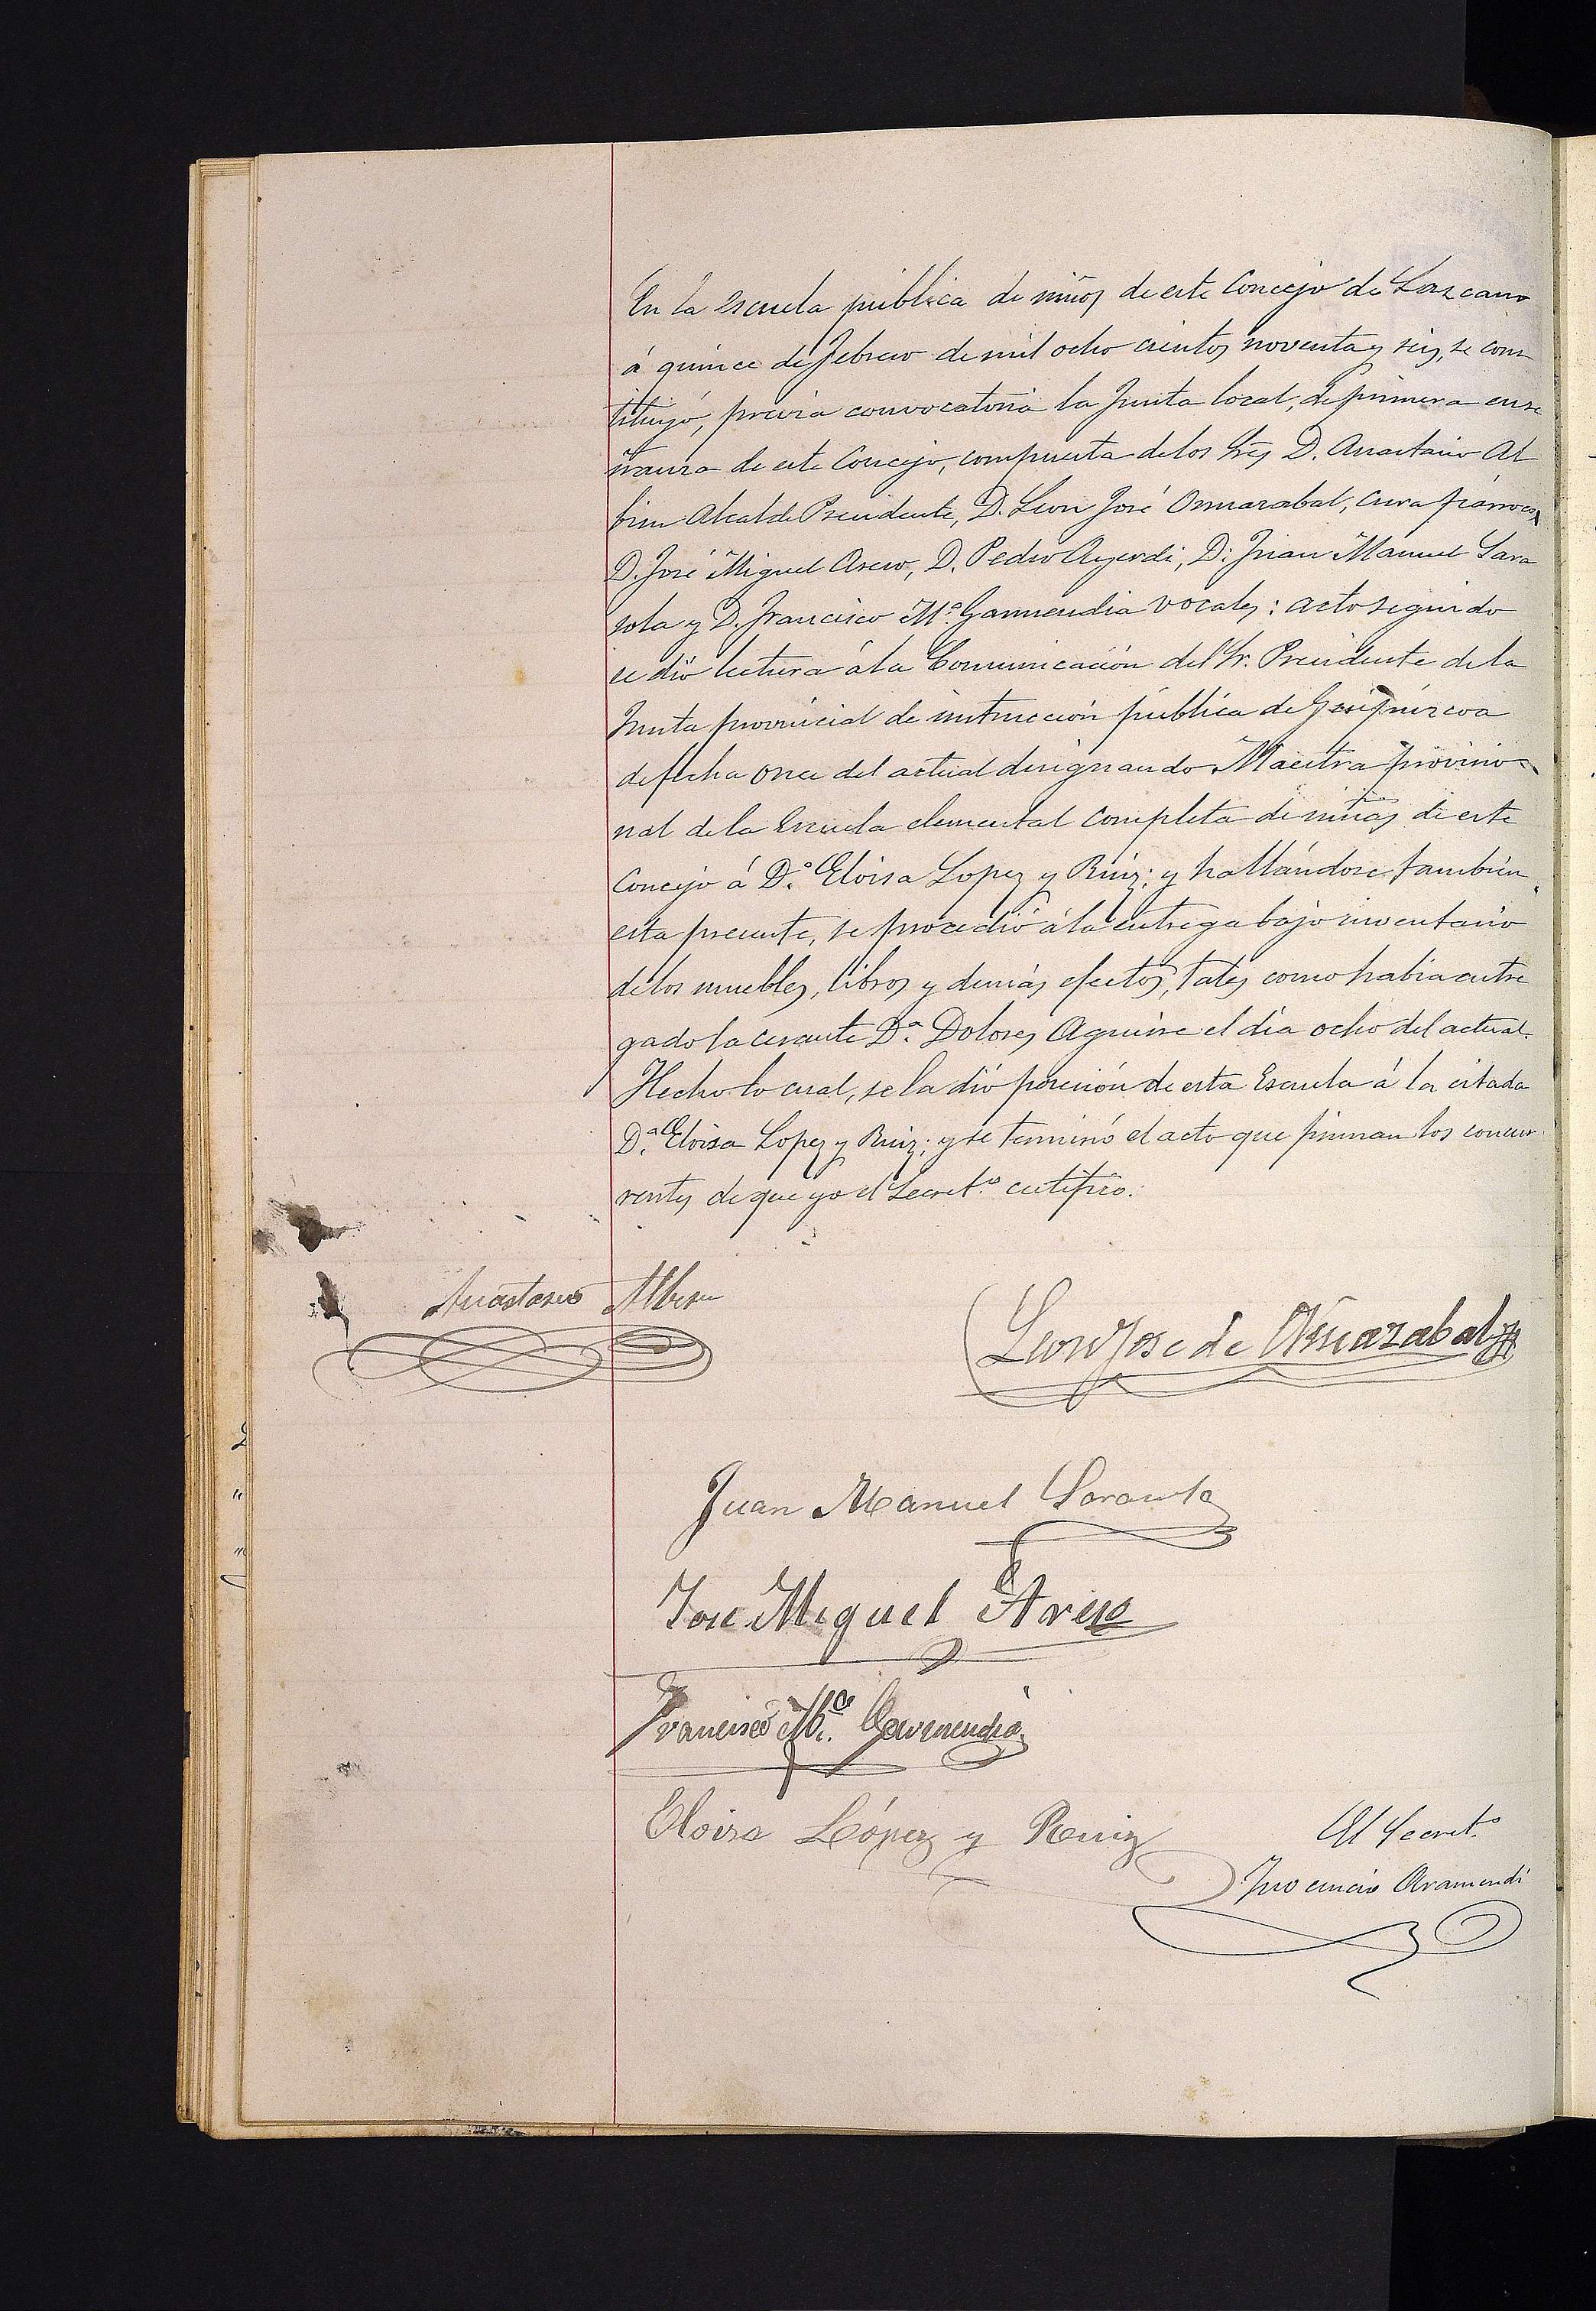 En la escuela pública de niños de este Concejo de Lazcano
á quince de febrero de mil ocho cientos noventa y seis, se cons
tituyó, previa convocatoria la Junta local, de primera ense
ñanza de este Concejo, compuesta de los Sres D. Anastasio Al
bisu Alcalde Presidente, D. Leon José Ormazabal, cura párroco,
D. José Miguel Areso, D. Pedro Ayerdi, D. Juan Manuel Sara
sola y D. Francisco Mª Garmendia vocales: acto seguido
se dió lectura á la Comunicación del Sr. Presidente de la
Junta provincial de instrucción pública de Guipúzcoa
de fecha once del actual designando Maestra provisio
nal de la Escuela elemental completa de niñas de este
Concejo á D.ª Eloisa Lopez y Ruiz; y hallándose también
esta presente, se procedió á la entrega bajo inventario
de los muebles, libros y demás efectos, tales como había entre
gado la cesante D.ª Dolores Aguirre el día ocho del actual.
Hecho lo cual, se la dió posesión de esta Escuela á la citada
D.ª Eloisa Lopez y Ruiz; y se terminó el acto que firman los concur
rentes de que yo el Secret.º certifico.
Anastasio Albisu
Leon Jose de Ormazabal
Juan Manuel Sarasola
Jose Miguel Areso
Francisco Mª Garmendia
Eloisa López y Ruiz
El Secret.º
Inocencio Aramendi